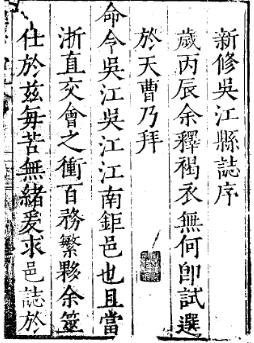 新修吳江縣誌序
歲丙辰余釋褐衣無何卽試選
於天曹乃拜
命令吳江吳江江南鉅邑也且當
浙直交會之衝百務繁夥余筮
仕於茲每苦無緒爰求邑誌於